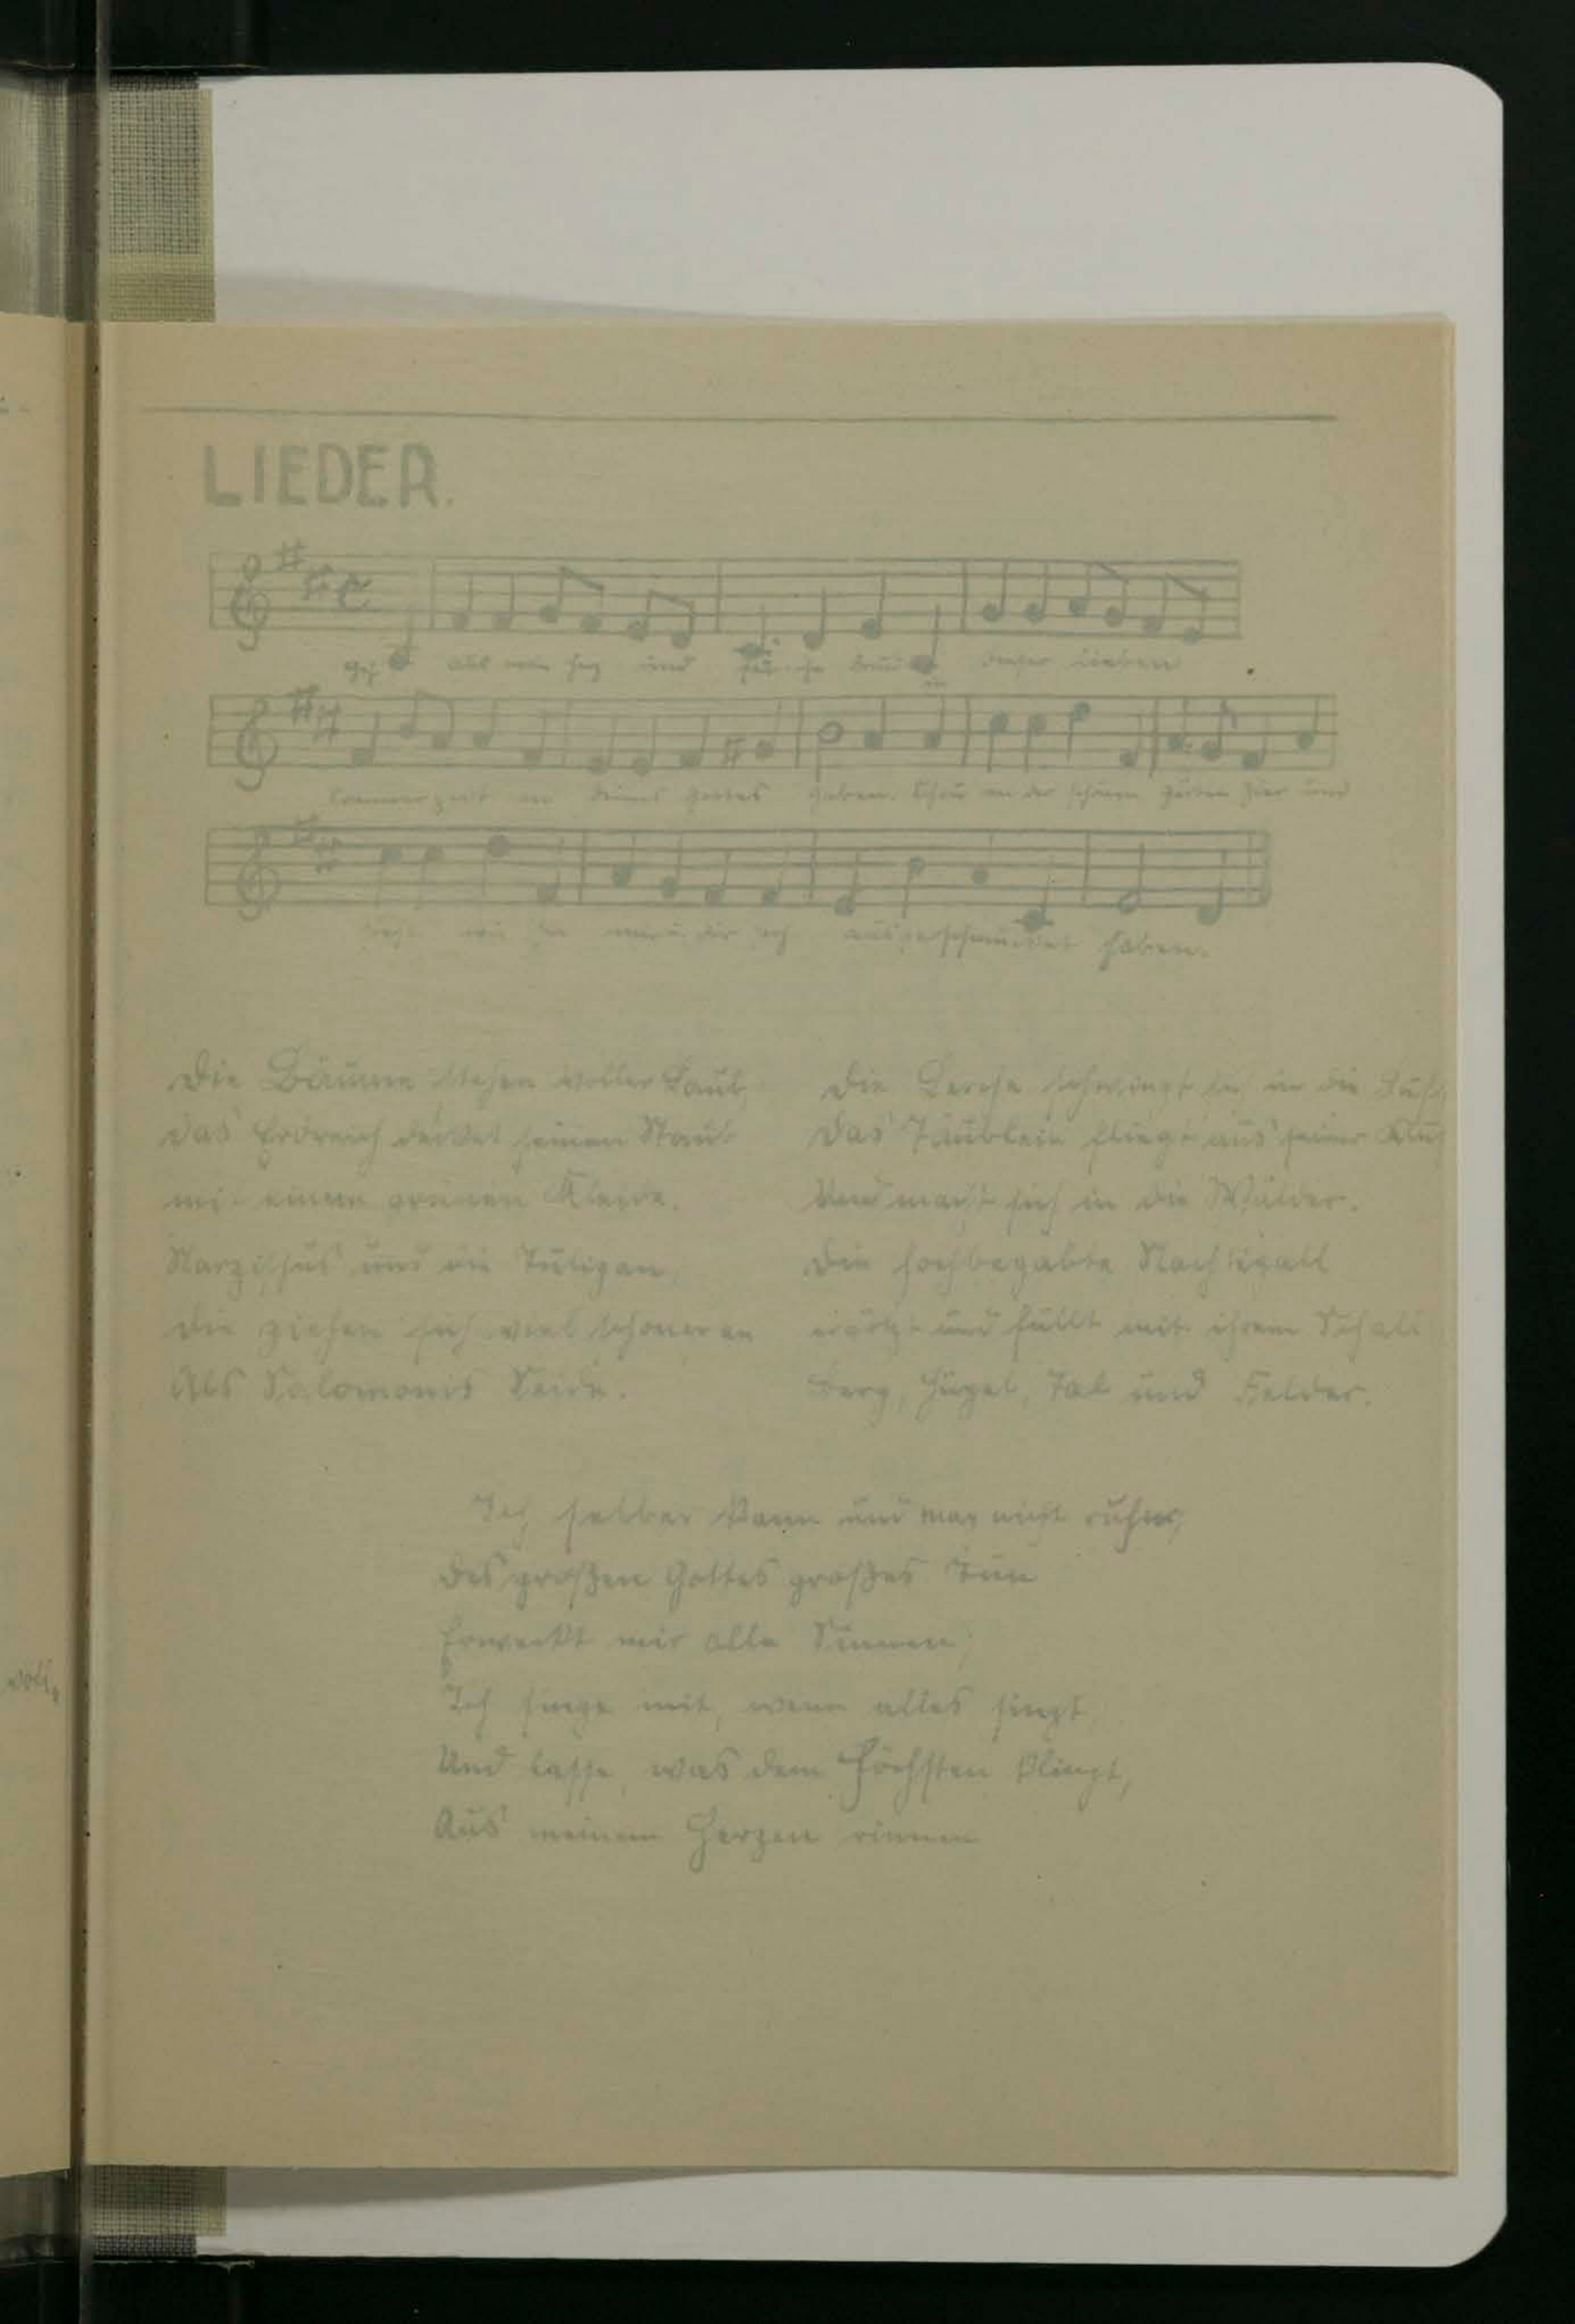 LIEDER.
Geh aus mein Herz und suche Freud in dieser lieben
Sommerzeit an deines Gottes Gaben. Schau an der schönen Gärten Zier und
siehe wie sie mir u. dir sich ausgeschmücket haben.
Die Bäume stehen voller Laub,
das Erdreich decket seinen Staub
mit einem grünen Kleide.
Narzissus und die Tulipan,
die ziehen sich viel schöner an
Als Salomonis Seide.
Die Lerche schwingt sich in die Luft,
Das Täublein fliegt aus seiner
Und macht sich in die Wälder.
Die hochbegabte Nachtigall
ergötzt und füllt mit ihrem Schall
Berg, Hügel, Tal und Felder.
Ich selber kann und mag nicht ruhn,
des großen Gottes großes Tun
Erweckt mir alle Sinnen;
Ich singe mit, wenn alles singt,
Und lasse, was dem Höchsten klingt,
Aus meinem Herzen rinnen
voll,